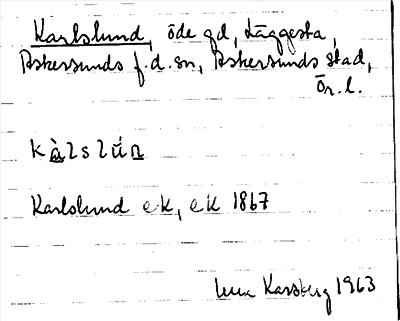 Karlslund, öde gd, Läggesta,
Askersunds f.d. sn, Askersunds stad,
Ör. l.
kàlslún
Karlslund ek, ek 1867
Karsberg 1963